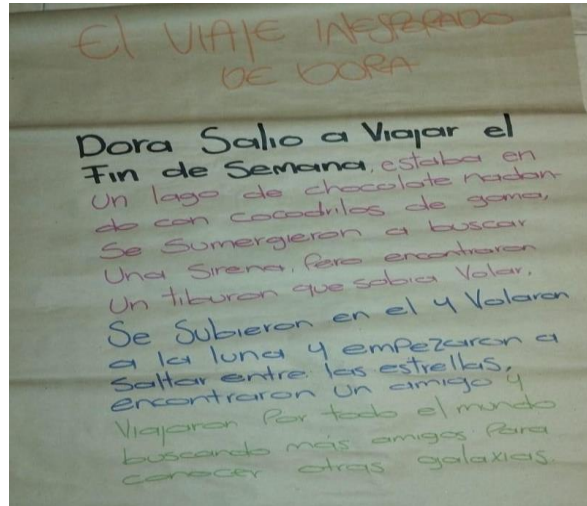 El VIAJE INESPERADO
DE DORA
Dora Salio a Viajar el
Fin de Semana, estaba en
Un lago de chocolate nadan-
do con cocodrilos de goma,
Se Sumergieron a buscar
Una Sirena, Pero encontraron
Un tiburon que sabia Volar.
Se Subieron en el y Volaron
a la luna y empezaron a
Saltar entre las estrellas,
encontraron un amigo y
Viajaron Por todo el mundo
buscando más amigos Para
conocer otras galaxias.